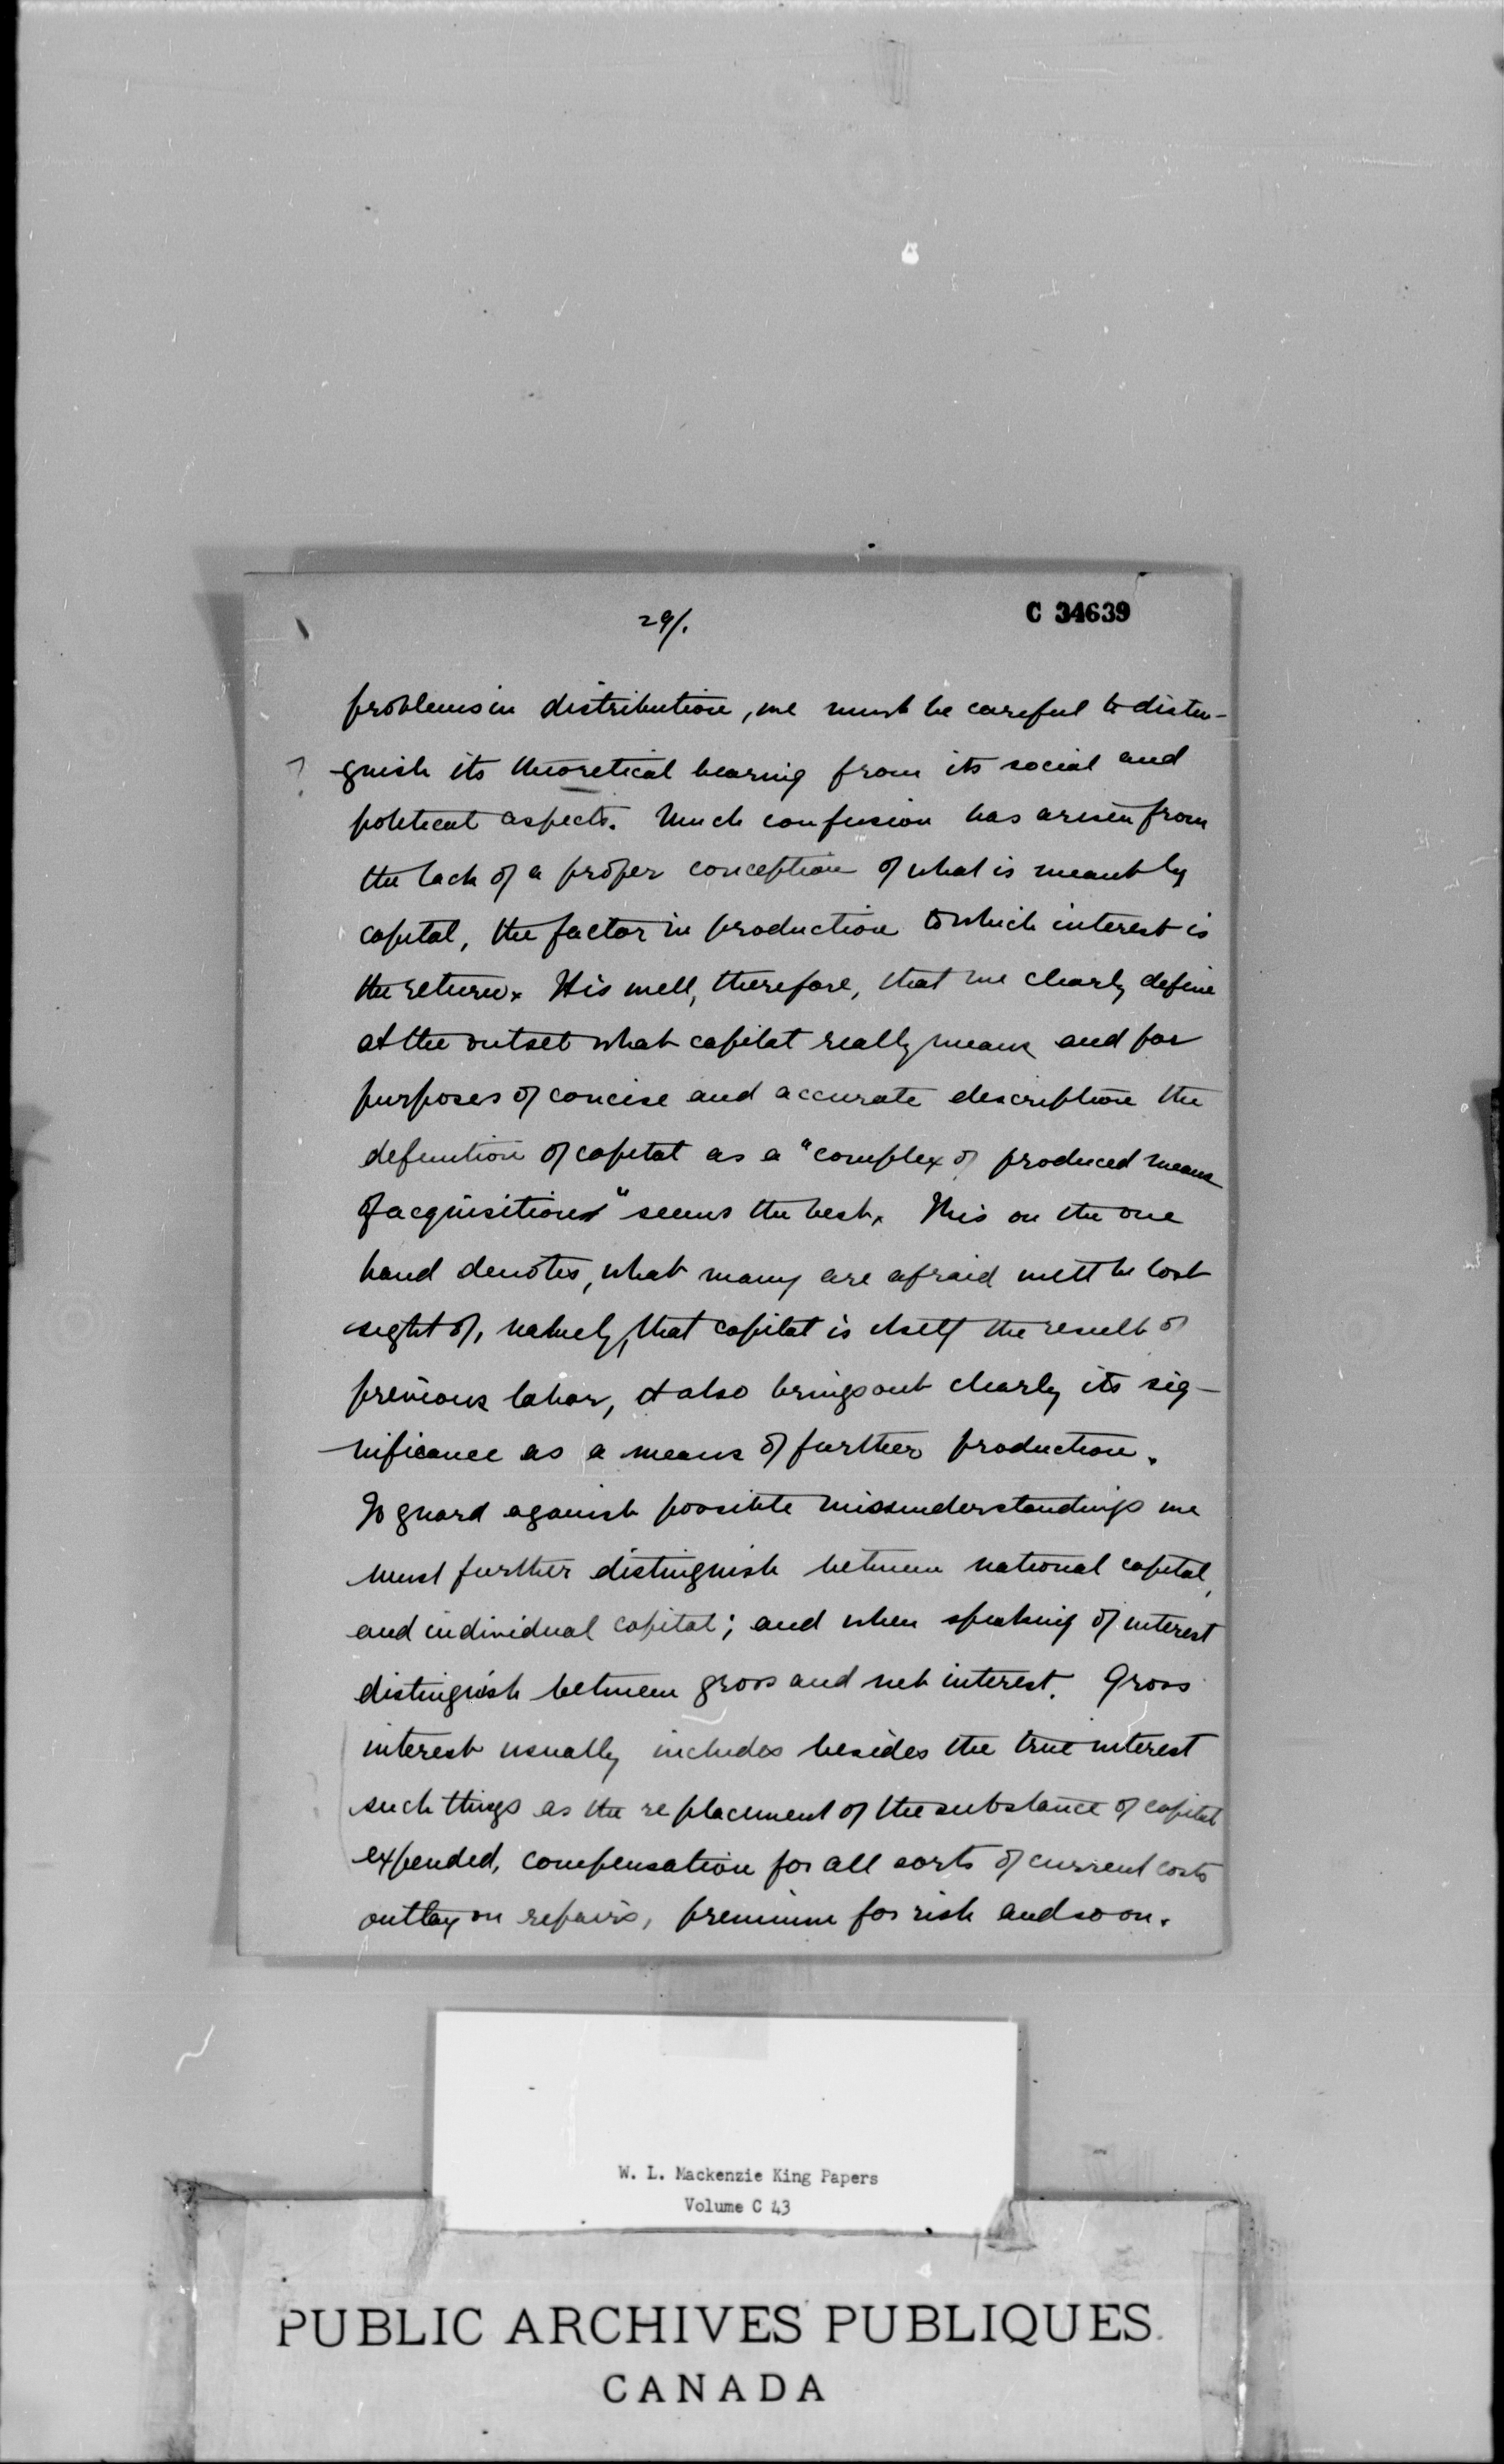 29/.
C 34639
problems in distribution, we must be careful to distin-
? guish its theoretical bearing from its social and
political aspects. Much confusion has arisen from
the lack of a proper conception of what is meant by
capital, the factor in production to which interest is
the return. It is well, therefore, that we clearly define
at the outset what capital really means and for
purposes of concise and accurate description the
definition of capital as a "complex of produced means
of acquisition" seems the best. This on the one
hand denotes, what many are afraid will be lost
sight of, namely, that capital is itself the result of
previous labor, it also brings out clearly its sig-
nificance as a means of further production.
To guard against possible misunderstandings we
must further distinguish between national capital,
and individual capital; and when speaking of interest
distinguish between gross and net interest. Gross
interest usually includes besides the true interest
such things as the replacement of the substance of capital
expended, compensation for all sorts of current costs
outlay on repairs, premium for risk and so on.
W. L. Mackenzie King Papers
Volume C 43
PUBLIC ARCHIVES PUBLIQUES
CANADA